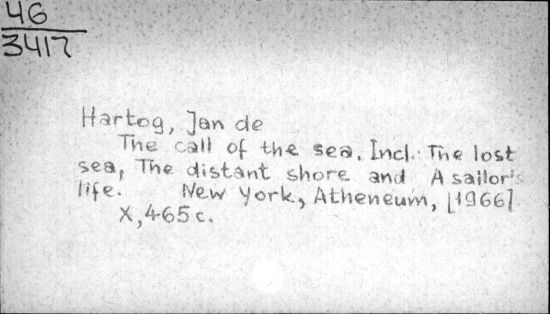 46
3417
Hartog, Jan de
The call of the sea. Incl.: The lost
sea, The distant shore and A sailor's
life. New York, Atheneum, [1966]
X, 465 c.